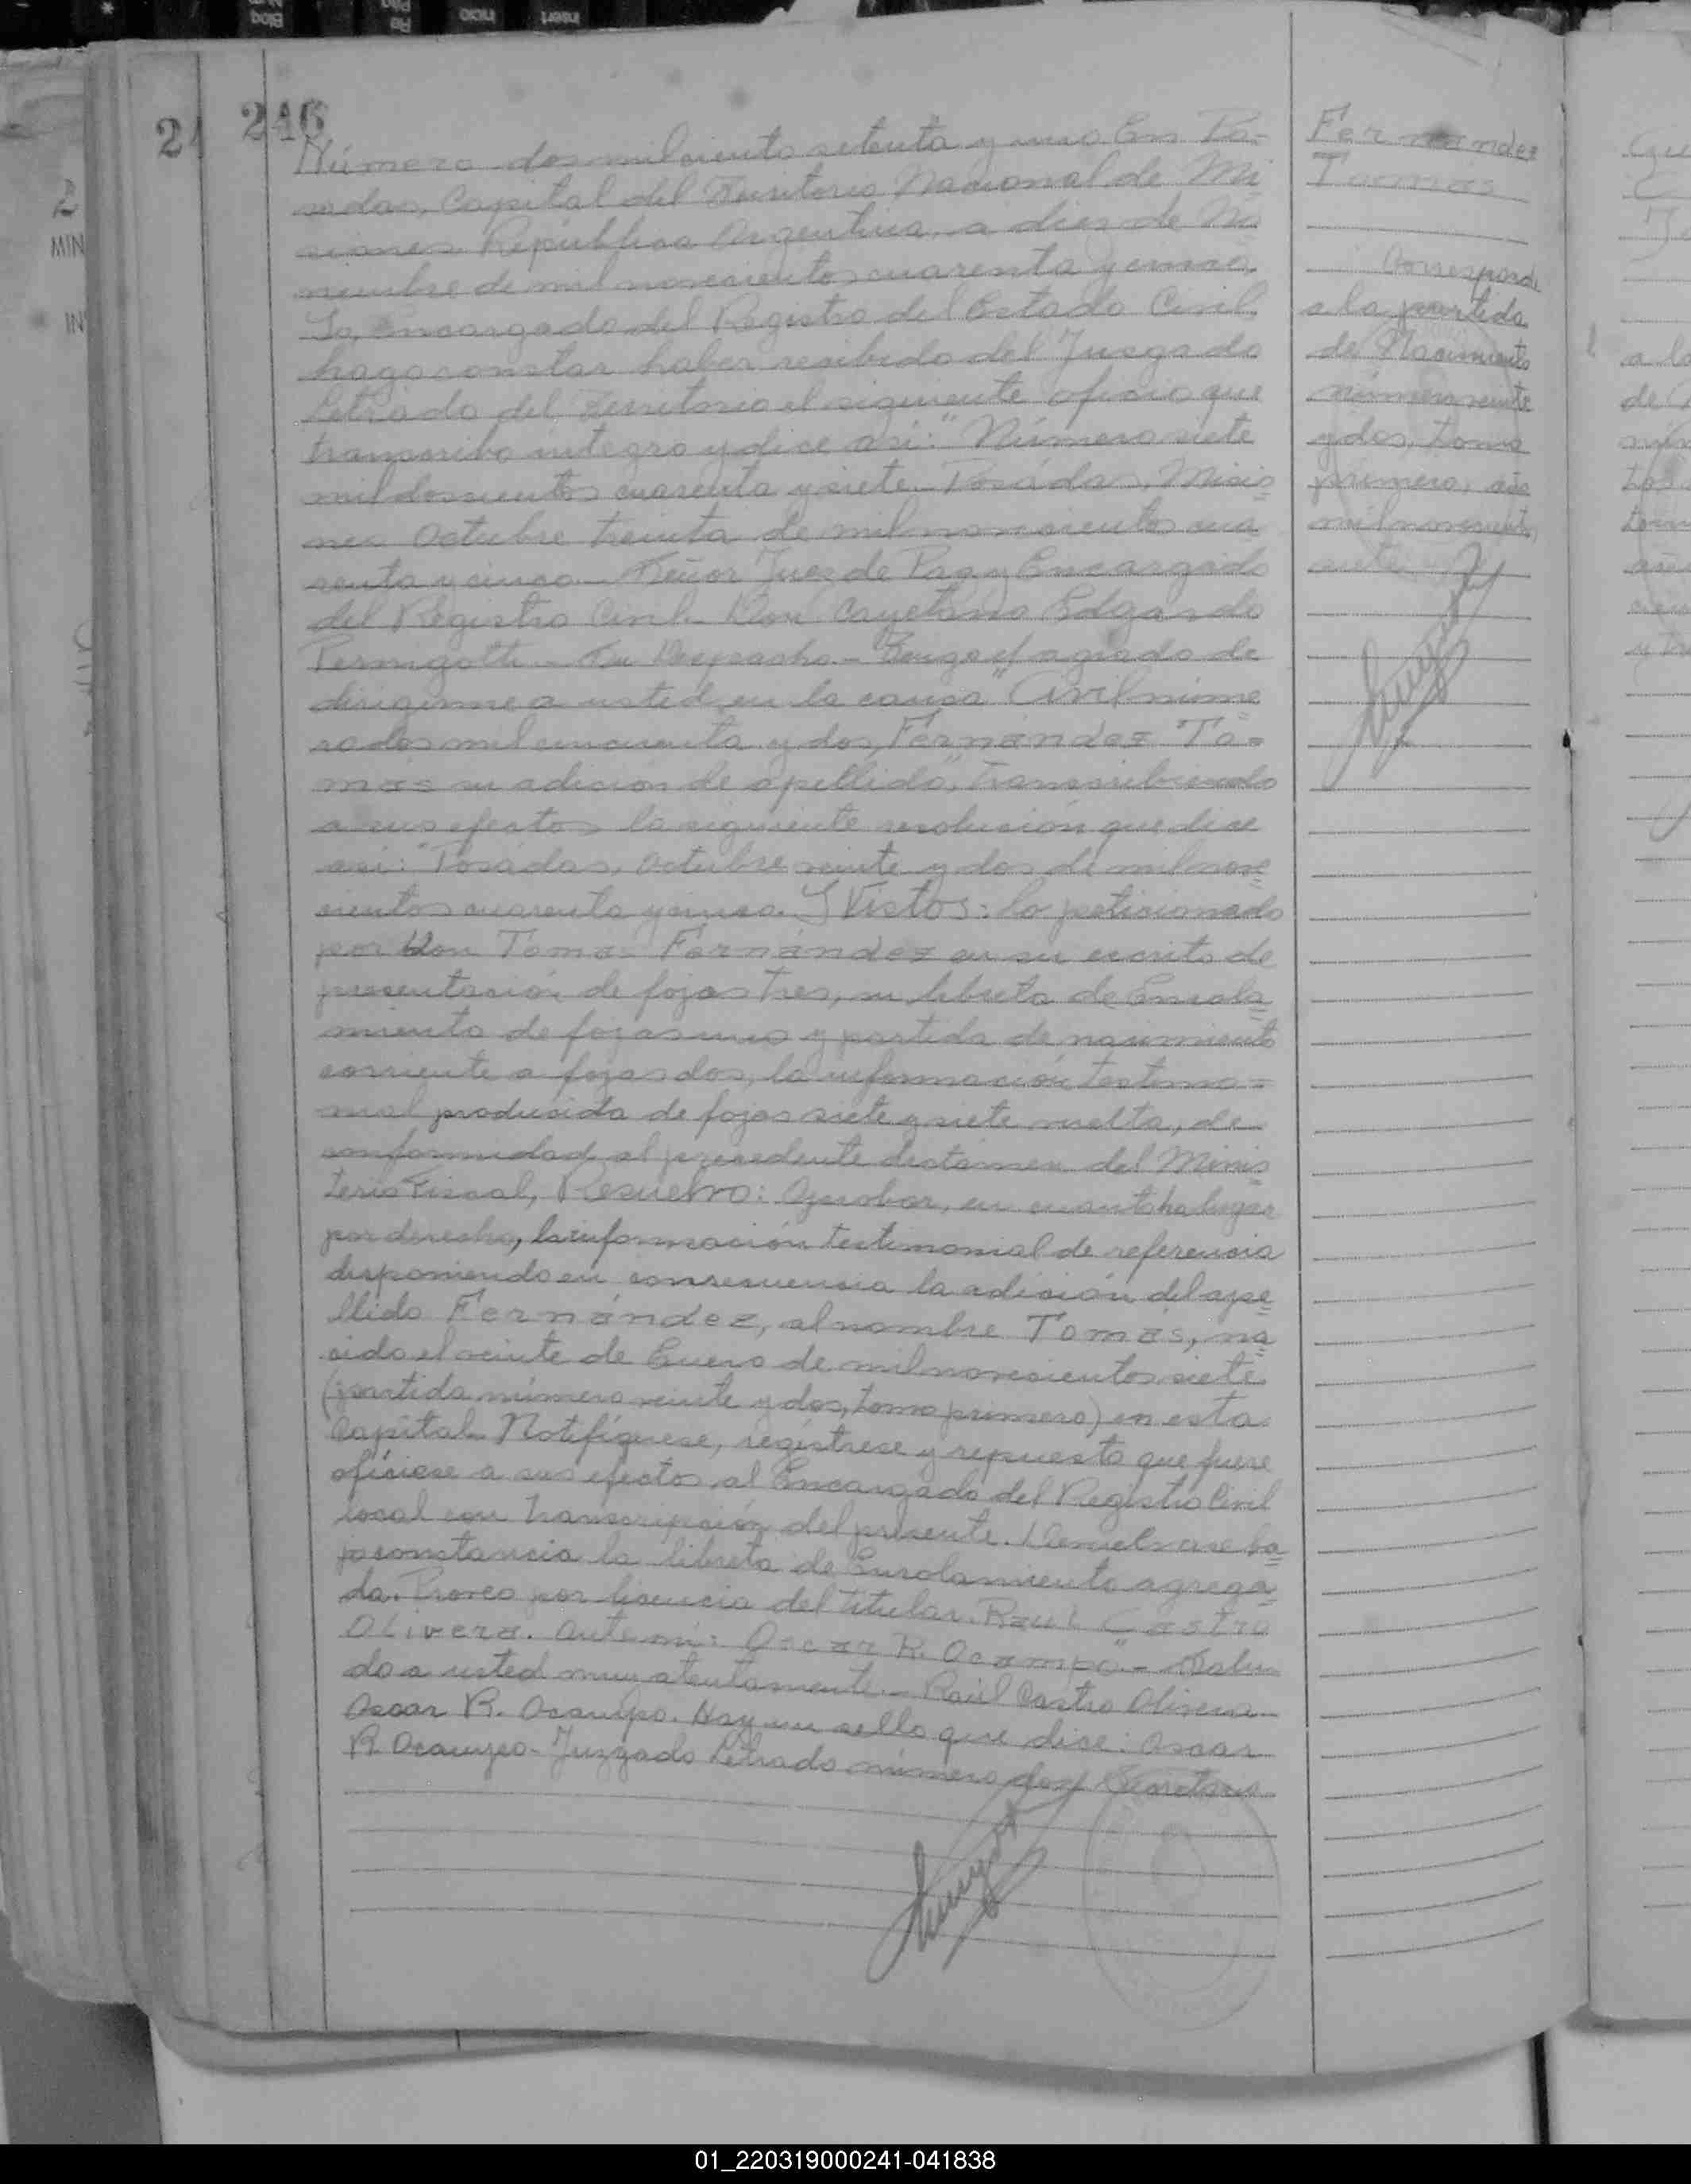 246
Número dos mil ciento setenta y uno En Po-
sadas, Capital del Territorio Nacional de Mi
siones República Argentina, a diez de No
viembre de mil novecientos cuarenta y cinco,
Yo, Encargado del Registro del Estado Civil,
hago constar haber recibido del Juzgado
Letrado del Territorio el siguiente oficio que
transcribo integro y dice asi: "Número siete
mil doscientos cuarenta y siete. Posadas, Misio
nes Octubre treinta de mil novecientos cua
renta y cinco. Señor Juez de Paz y Encargado
del Registro Civil. Don Cayetano Edgardo
Pernigotti - Su Despacho - Tengo el agrado de
dirigirme a usted en la causa "Civil núme
ro dos mil cincuenta y dos, Fernández To=
más su adición de apellido", transcribiendo
a sus efectos la siguiente resolución que dice
asi: "Posadas, Octubre veinte y dos de mil nove
cientos cuarenta y cinco. Y Vistos: lo peticionado
por Don Tomás Fernández en su escrito de
presentación de fojas tres, su libreta de Enrola
miento de fojas uno y partida de nacimiento
corriente a fojas dos, la información testimo=
nial producida de fojas siete y siete vuelta, de
conformidad al precedente dictámen del Minis
terio Fiscal, Resuelvo: Aprobar, en cuanto ha lugar
por derecho, la información testimonial de referencia
disponiendo en consecuencia la adición del ape
llido Fernández, al nombre Tomás, na
cido el veinte de Enero de mil novecientos siete
(partida número veinte y dos, tomo primero) en esta
Capital. Notifíquese, regístrese y repuesto que fuere
ofíciese a sus efectos al Encargado del Registro Civil
local con transcripción del presente. Devuelvase ba
jo constancia la libreta de Enrolamiento agrega
da. Proveo por licencia del titular. Raul Castro
Olivera. Ante mi: Oscar R. Ocampo" - Salu
do a usted muy atentamente. - Raúl Castro Olivera
Oscar R. Ocampo. Hay un sello que dice: Oscar
R. Ocampo - Juzgado Letrado número dos Secretario
Fernández
Tomás
Corresponde
a la partida
de Nacimiento
número veinte
y dos, tomo
primero, año
mil novecientos
siete
24
01_220319000241-041838